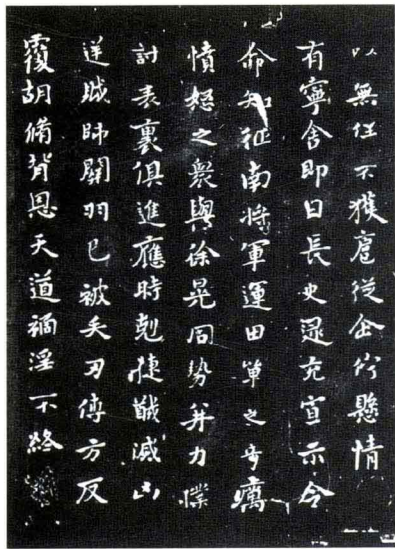 以無任不獲扈從企佇懸情
有寧舍即日長史逯充宣示令
命知征南將軍運田單之奇厲
憤怒之衆與徐晃同勢并力撲
討表裏俱進應時剋捷馘滅凶
逆賊帥關羽已被矢刃傅方反
覆胡脩背恩天道禍淫不終